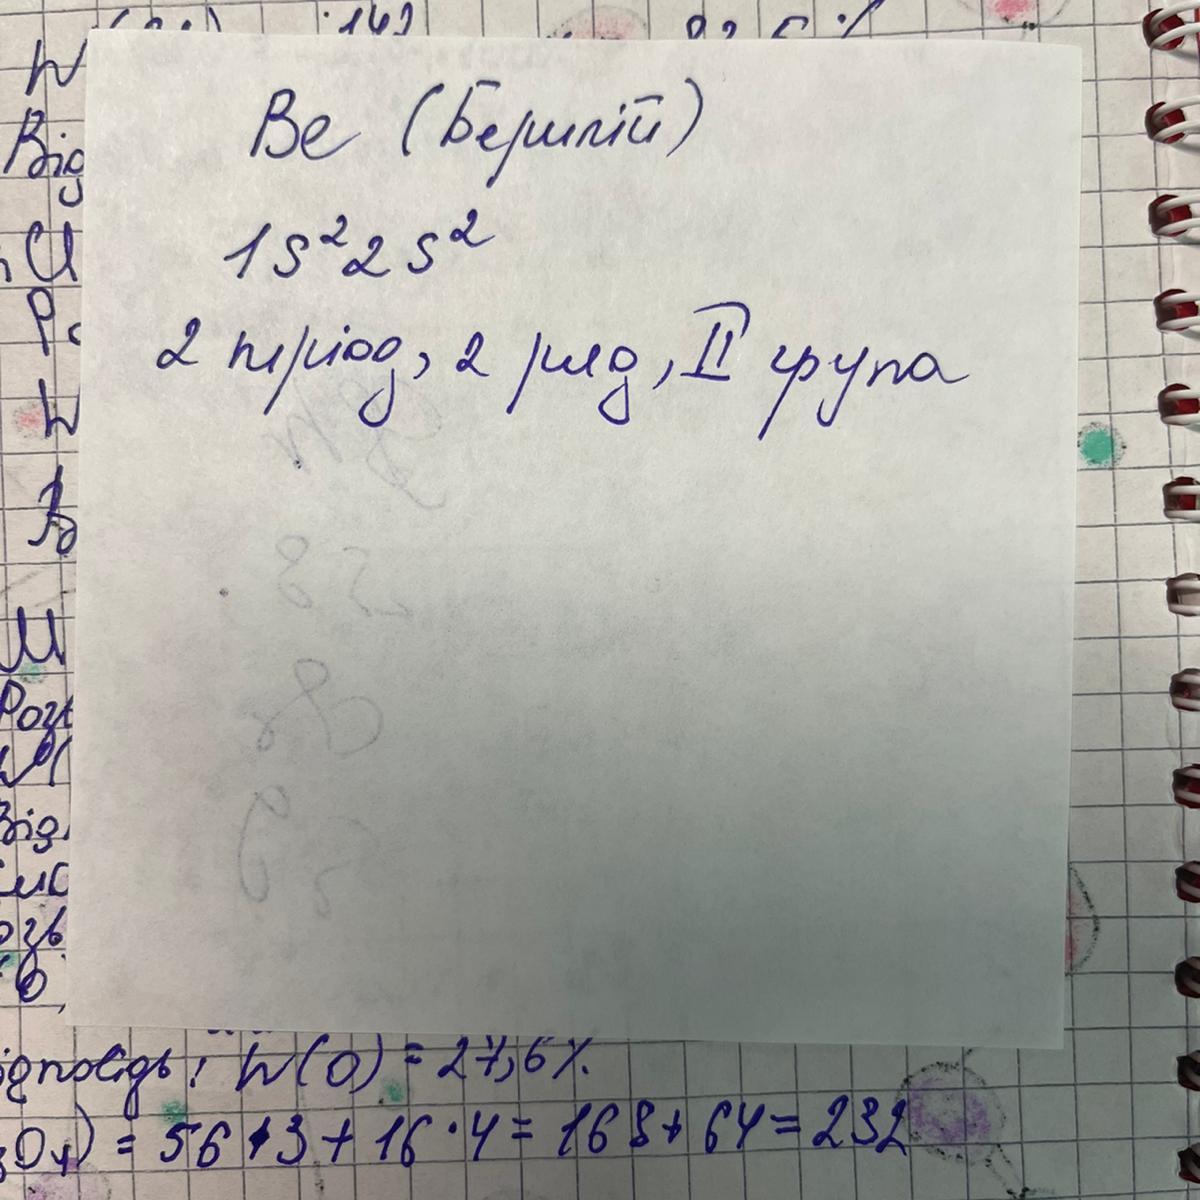 Be (Берилій)
1s²2s²
2 період, 2 ряд, II група
Від
Розв
Від
відповідь: W(O) = 27,6%.
= 56·3 + 16·4 = 168 + 64 = 232